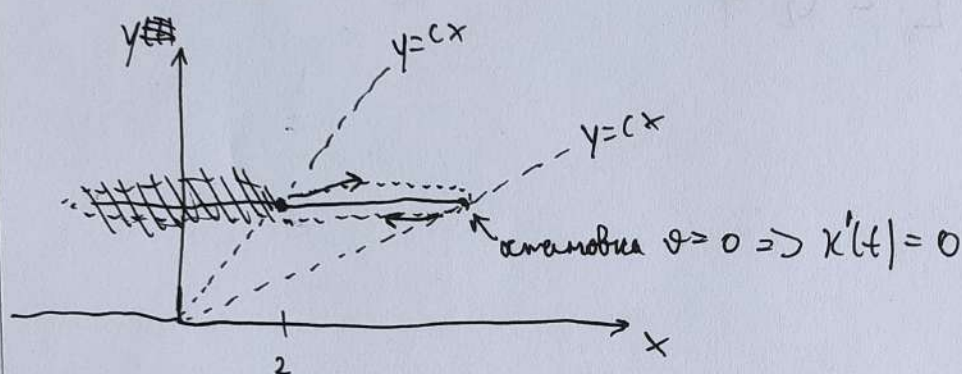 y
y=cx
y=cx
остановка v=0 => x'(t)=0
x
2